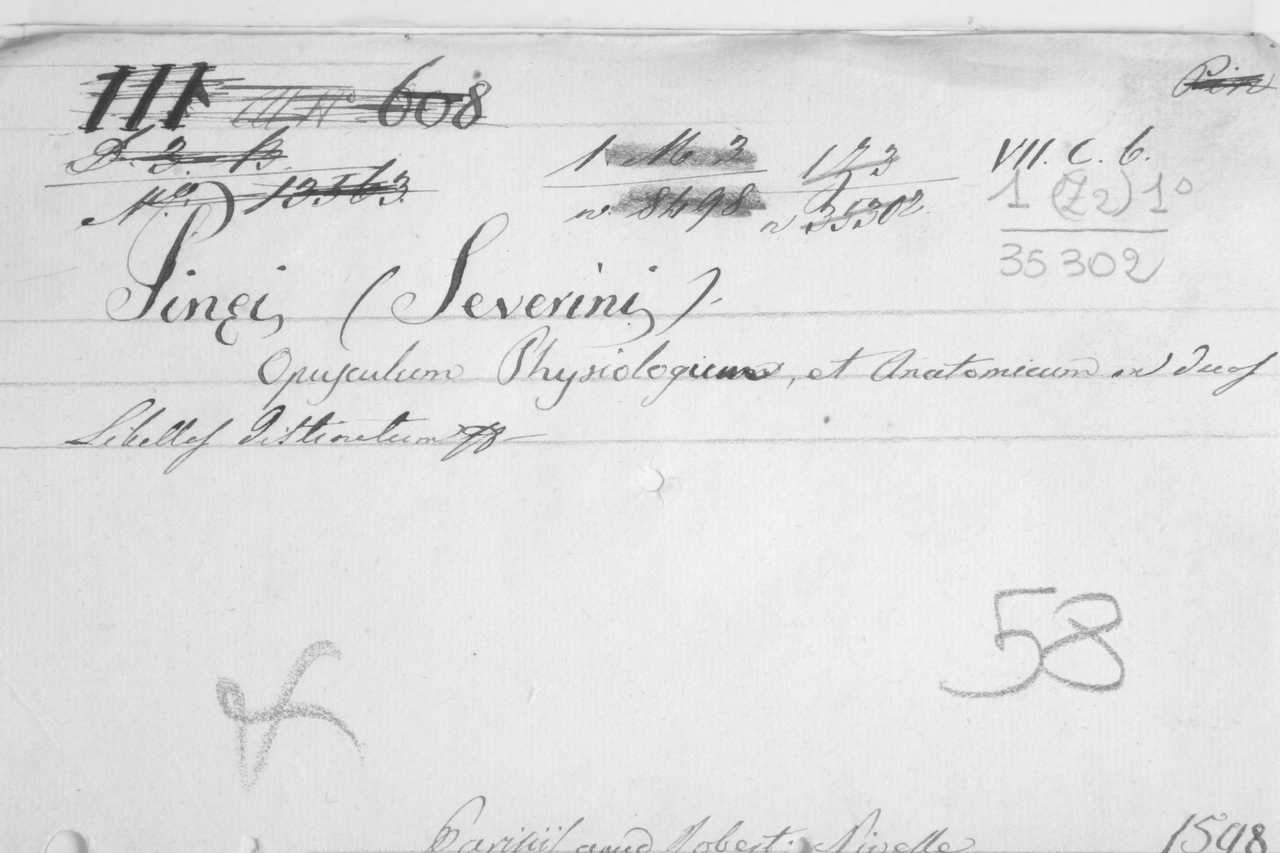 III III N° 608
D. 3. B.
N.° 12563
1 M 3
n. 8498
1 Z 3
n 35302
VII. C. 6.
1 (Z 2) 1°
35302
Pin
Pinęi (Severini).
Opusculum Physiologicum, et Anatomicum in duos
Libellos distinctum
58
Parisiis apud Robert. Nivelle
1598